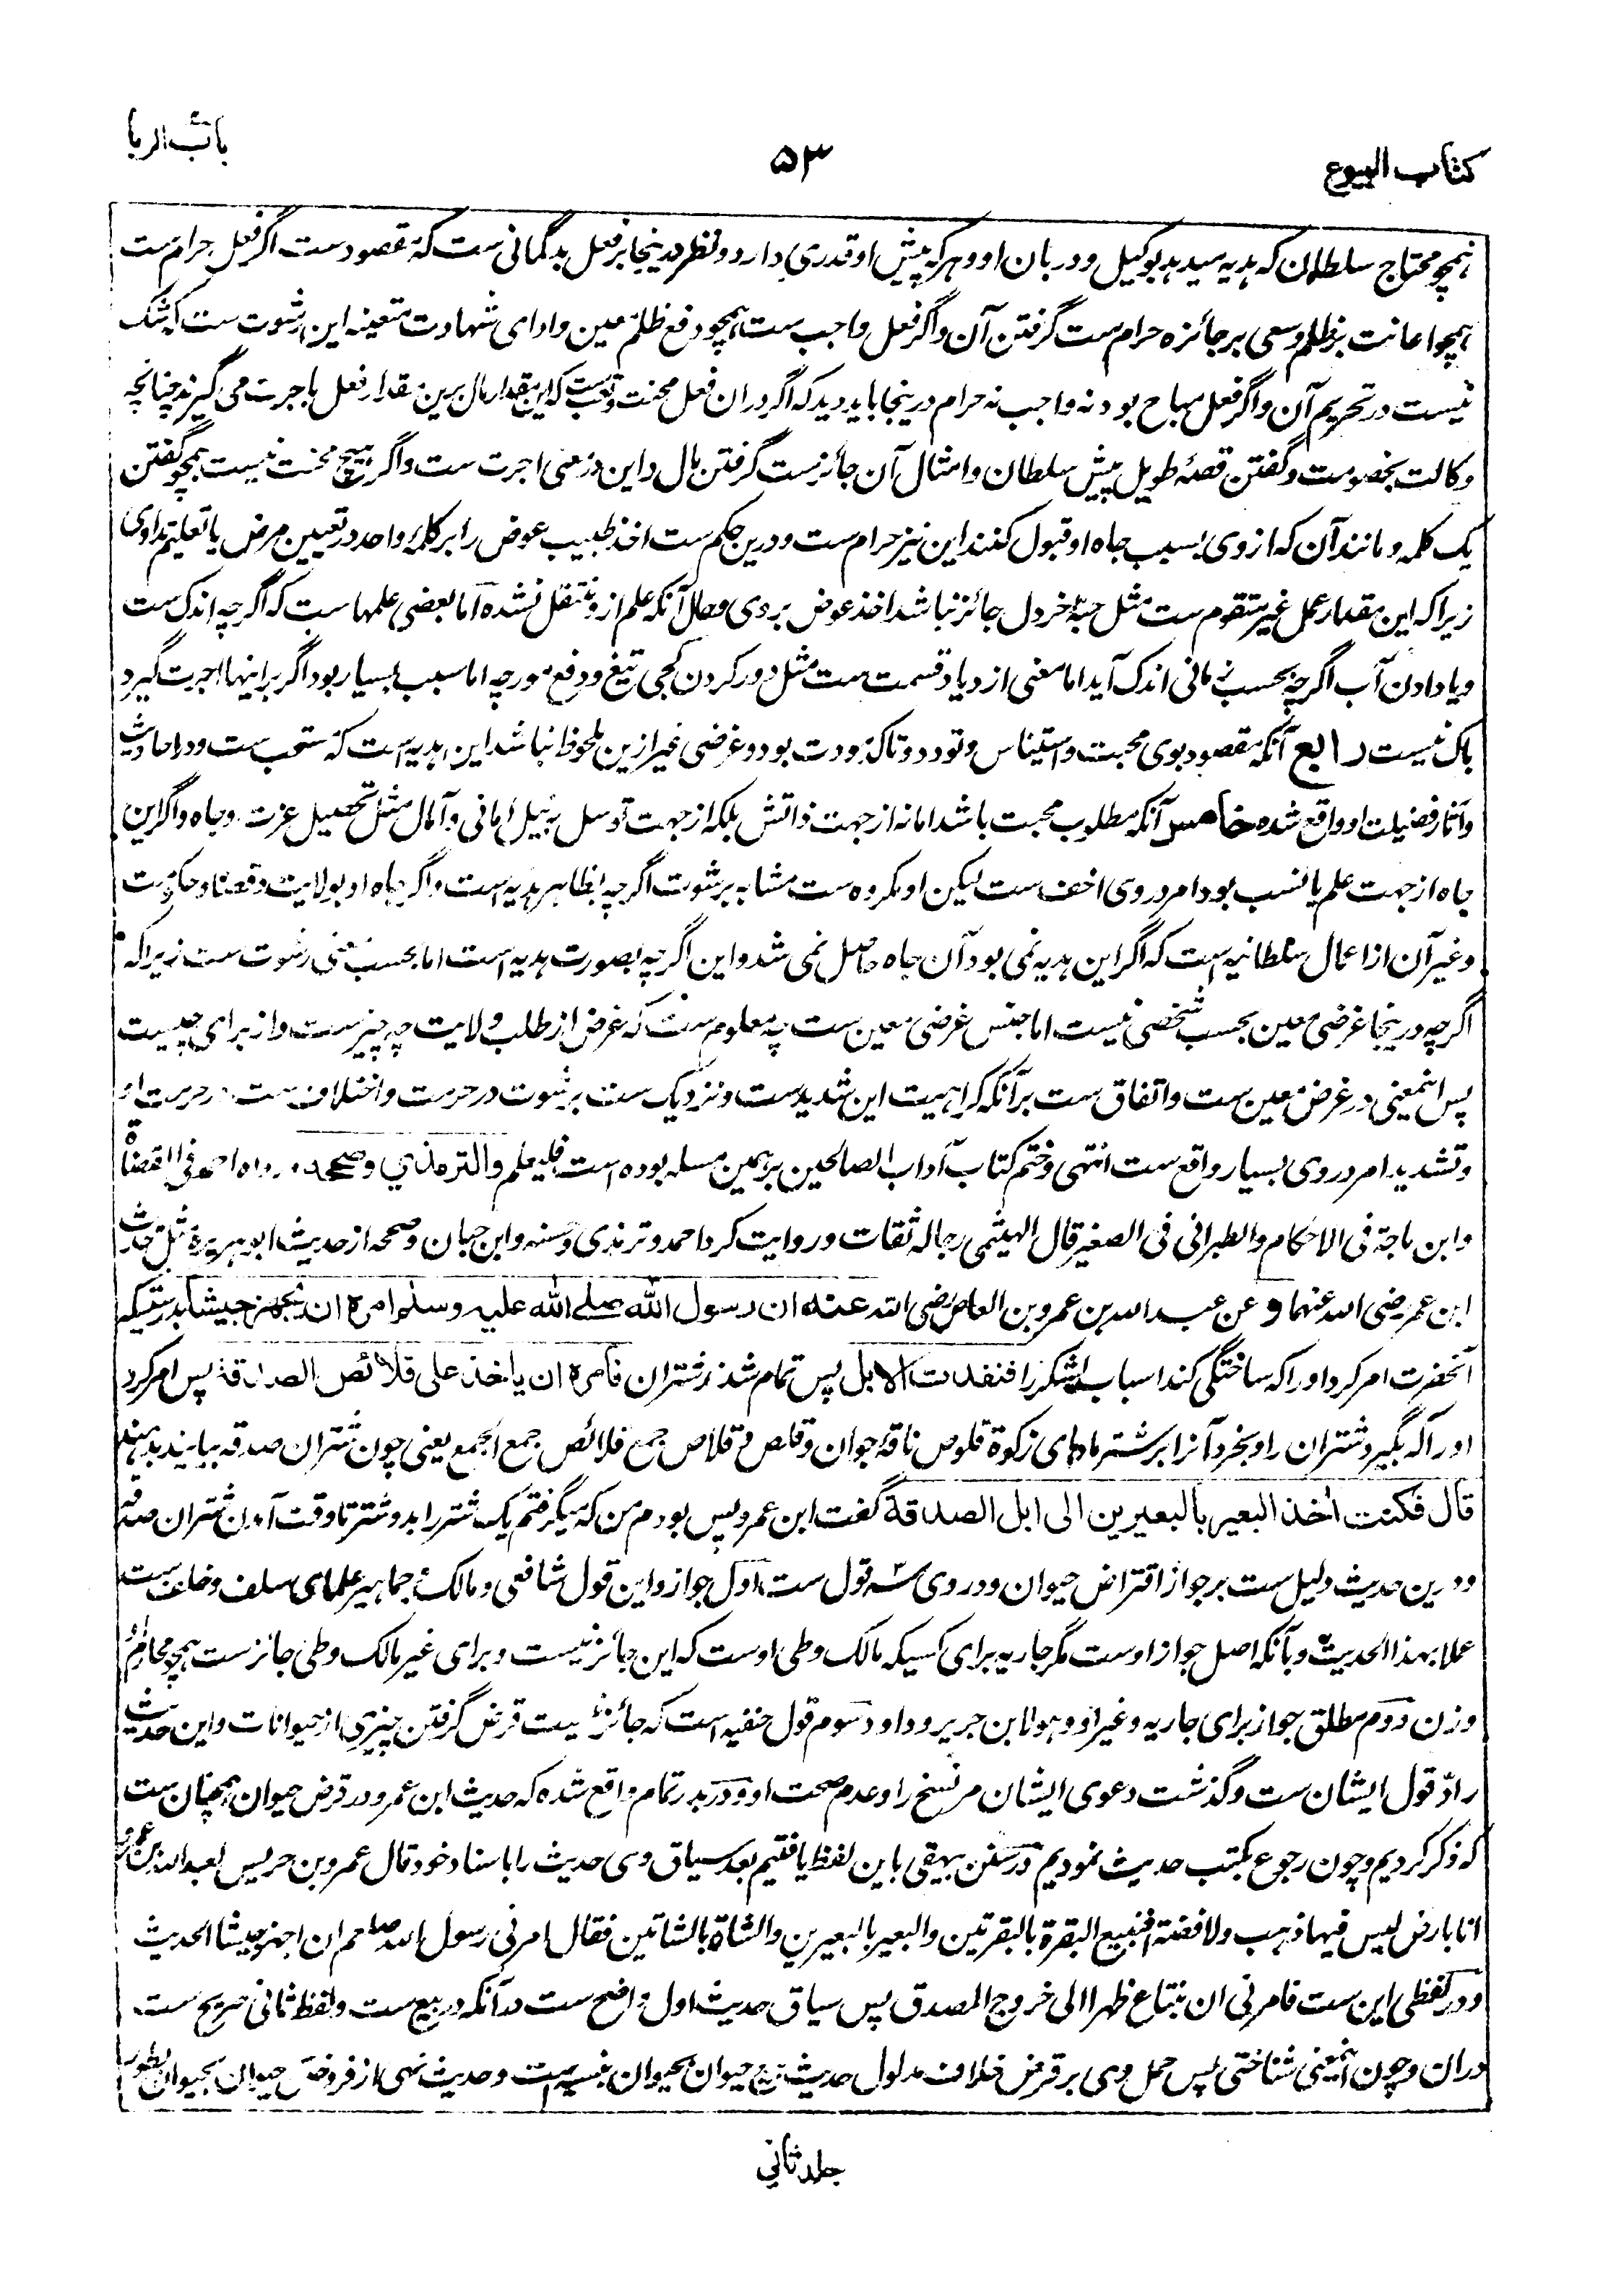 کتاب البیوع
۵۳
باب الربا
همچو محتاج سلطان که هدیه میدهد بوکیل و دربان او و هرکه پیش او قدری دارد و نظر درینجا بر فعل بدگمانی ست که مقصودست اگر فعل حرام ست
همچو اعانت بر ظلم و سعی بر جائزه حرام ست گرفتن آن و اگر فعل واجب ست همچو دفع ظلم معین و ادای شهادت متعینه این رشوت ست که شک
نیست در تحریم آن و اگر فعل مباح بود نه واجب نه حرام درینجا باید دید که اگر دران فعل محنت و تعب ست که این مقدار مال برین مقدار فعل باجرت می گیرند چنانچه
وکالت بخصومت و گفتن قصۀ طویل پیش سلطان و امثال آن جائزست گرفتن مال و این در معنی اجرت ست و اگر هیچ محنت نیست همچو گفتن
یک کلمه و مانند آن که از وی بسبب جاه او قبول کنند این نیز حرام ست و درین حکم ست اخذ طبیب عوض را بر کلمۀ واحد در تعیین مرض یا تعلیم تداوی
زیراکه این مقدار عمل غیر متقوم ست مثل حبۀ خردل جائز نباشد اخذ عوض بر وی و حال آنکه علم از و منتقل نشده اما بعضی علمها ست که اگرچه اندک ست
و یا دادن آب اگرچه بحسب زمانی اندک آید اما معنی ازدیاد قسمت ست مثل دور کردن کجی تیغ و دفع مورچه اما سبب بسیار بود اگر بر اینها اجرت گیرد
باک نیست رابع آنکه مقصود بوی محبت و استیناس و تودد و تاکد مودت بود و غرضی غیر ازین ملحوظ نباشد این هدیه است که مستحب ست و در احادیث
و آثار فضیلت او واقع شده خامس آنکه مطلوب محبت باشد اما نه از جهت ذاتش بلکه از جهت توسل به نیل امانی و آمال مثل تحصیل عزت و جاه و اگر این
جاه از جهت علم یا نسب بود امر در وی اخف ست لیکن او مکروه ست مشابه برشوت اگرچه بظاهر هدیه است و اگر جاه او بولایت و قضا و حکومت
و غیر آن از اعمال سلطانیه است که اگر این هدیه نمی بود آن جاه حاصل نمی شد و این اگرچه بصورت هدیه است اما بحسب معنی رشوت ست زیراکه
اگرچه درینجا غرضی معین بحسب شخصی نیست اما جنس غرضی معین ست چه معلوم ست که غرض از طلب ولایت چه چیزست و از برای چیست
پس اینمعنی در غرض معین ست و اتفاق ست برآنکه کراهیت این شدیدست و نزدیک ست برشوت در حرمت و اختلاف ست در حرمت او
و تشدید امر در وی بسیار واقع ست انتهی و ختم کتاب آداب الصالحین بر همین مسله بوده است فلیعلم والترمذي وصححه رواه احمد في القضاة
و ابن ماجة فی الاحکام والطبرانی فی الصغیر قال الهیثمی رجاله ثقات و روایت کرد احمد و ترمذی و حسنه و ابن حبان و صححه از حدیث ابو هریرة مثل حدیث
ابن عمر رضی الله عنهما و عن عبد الله بن عمرو بن العاص رضی الله عنه ان رسول الله صلے الله علیه وسلم امره ان یجهز جیشا بدرستیکه
آنحضرت امر کرد او را که ساختگی کند اسباب لشکر را فنفدت الابل پس تمام شد نر شتران فامره ان یاخذ علی قلائص الصدقة پس امر کرد
او را که بگیرد شتران را و بخرد آنرا بر شتر مادهای زکوة قلوص ناقۀ جوان و قلص و قلاص جمع قلائص جمع الجمع یعنی چون شتران صدقه بیایند بدهند
قال فکنت اخذ البعیر بالبعیرین الی ابل الصدقة گفت ابن عمرو پس بودم من که میگرفتم یک شتر را بدو شتر تا وقت آمدن شتران صدقه
و درین حدیث دلیل ست بر جواز اقتراض حیوان و در وی سه قول ست اول جواز و این قول شافعی و مالک و جماهیر علمای سلف و خلف ست
عملا بهذا الحدیث و بآنکه اصل جواز اوست مگر جاریه برای کسیکه مالک وطی اوست که این جائز نیست و برای غیر مالک وطی جائزست همچو محارم او
و زن دوم مطلق جواز برای جاریه و غیر او و هو لابن جریر و داود سوم قول حنفیه است که جائز نیست قرض گرفتن چیزی از حیوانات و این حدیث
راد قول ایشان ست و گذشت دعوی ایشان مر نسخ را و عدم صحت او و در بدر تمام واقع شده که حدیث ابن عمرو در قرض حیوان همچنان ست
که ذکر کردیم و چون رجوع بکتب حدیث نمودیم در سنن بیهقی باین لفظ یافتیم بعد سیاق وی حدیث را باسناد خود قال عمرو بن حریس لعبد الله بن عمرو
انا بارض لیس فیها ذهب ولا فضة افنبیع البقرة بالبقرتین والبعیر بالبعیرین والشاة بالشاتین فقال امرنی رسول الله صلعم ان اجهز جیشا الحدیث
و در لفظی این ست فامرنی ان نبتاع ظهرا الی خروج المصدق پس سیاق حدیث اول واضح ست درآنکه در بیع ست و لفظ ثانی صریح ست
دران و چون اینمعنی شناختی پس حمل وی بر قرض خلاف مدلول حدیث بیع حیوان بحیوان بنسیه است و حدیث نهی از فروختن حیوان بحیوان بطور
جلد ثانی